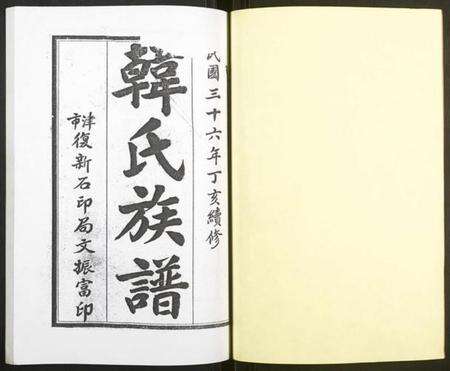 民國三十六年丁亥續修
韓氏族譜
津市復新石印局文振富印